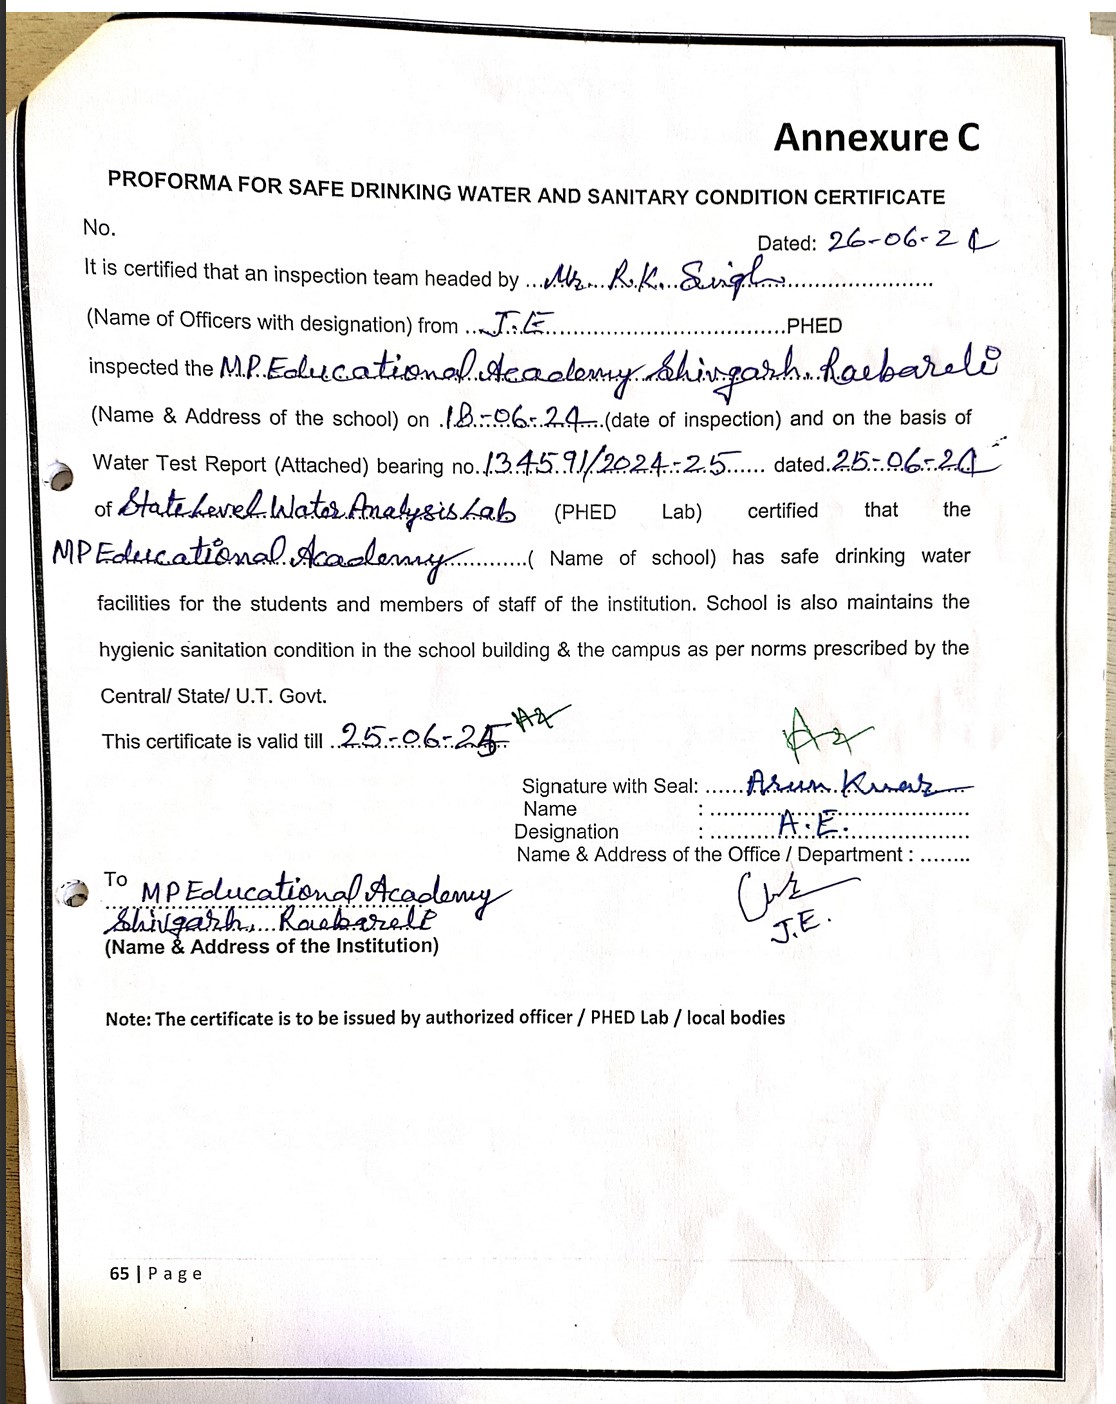 Annexure C
PROFORMA FOR SAFE DRINKING WATER AND SANITARY CONDITION CERTIFICATE
No.
Dated: 26-06-24
It is certified that an inspection team headed by ...Mr. R.K. Singh..........................
(Name of Officers with designation) from ...J.E............................................PHED
inspected the M.P. Educational Academy Shivgarh, Raebareli
(Name & Address of the school) on .18-06-24..(date of inspection) and on the basis of
Water Test Report (Attached) bearing no.134591/2024-25...... dated.25-06-24
of State Level Water Analysis Lab (PHED Lab) certified that the
MP Educational Academy............( Name of school) has safe drinking water
facilities for the students and members of staff of the institution. School is also maintains the
hygienic sanitation condition in the school building & the campus as per norms prescribed by the
Central/ State/ U.T. Govt.
This certificate is valid till ..25-06-25
Signature with Seal: ......Arun Kumar
Name : ...........................................
Designation : ..........A.E......................
Name & Address of the Office / Department : ........
J.E.
To MP Educational Academy
Shivgarh, Raebareli
(Name & Address of the Institution)
Note: The certificate is to be issued by authorized officer / PHED Lab / local bodies
65 | Page